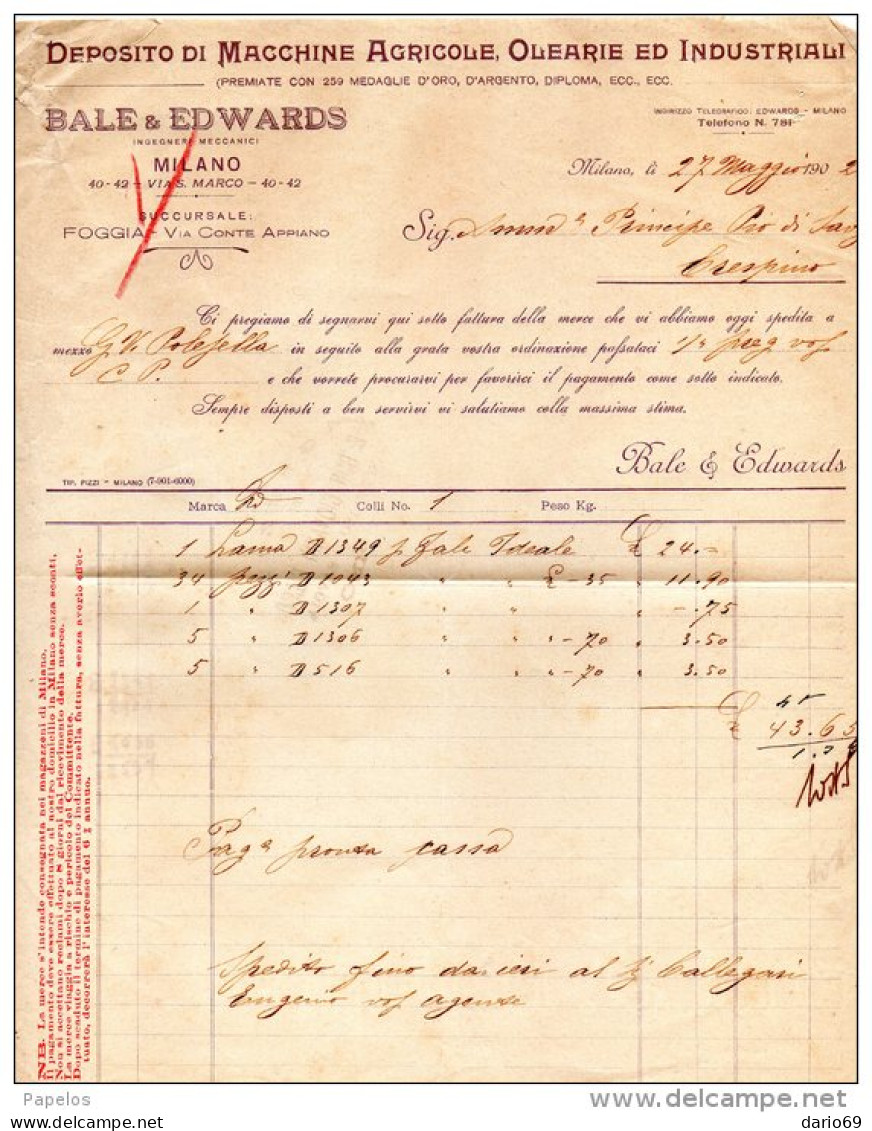 DEPOSITO DI MACCHINE AGRICOLE, OLEARIE ED INDUSTRIALI
(PREMIATE CON 259 MEDAGLIE D'ORO, D'ARGENTO, DIPLOMA, ECC., ECC.
BALE & EDWARDS
INGEGNERI MECCANICI
MILANO
40-42 - VIA S. MARCO - 40-42
SUCCURSALE:
FOGGIA - VIA CONTE APPIANO
INDIRIZZO TELEGRAFICO: EDWARDS - MILANO
Telefono N. 781
Milano, li 27 Maggio 1902
Sig. Principe Pio di Sav
Crespino
Ci pregiamo di segnarvi qui sotto fattura della merce che vi abbiamo oggi spedita a
mezzo G. V. Polesella in seguito alla grata vostra ordinazione passataci preg
C P. e che vorrete procurarvi per favorirci il pagamento come sotto indicato.
Sempre disposti a ben servirvi vi salutiamo colla massima stima.
Bale & Edwards
TIP. PIZZI - MILANO (7-901-6000)
Marca Colli No. 1 Peso Kg.
1 Lama D1349 p Fale Ideale £ 24.-
34 pezzi D1043 " " £ -35 " 11.90
1 " D1307 " " " -.75
5 " D1306 " " -70 " 3.50
5 " D516 " " -70 " 3.50
£ 43.65
Pag pronta cassa
Spedito fino da ieri al Callegari
Eugenio agente
NB. La merce s'intende consegnata nei magazzeni di Milano.
Il pagamento deve essere effettuato al nostro domicilio in Milano senza sconti.
Non si accettano reclami dopo 8 giorni dal ricevimento della merce.
La merce viaggia a rischio e pericolo del Committente.
Dopo scaduto il termine di pagamento indicato nella fattura, senza averlo effet-
tuato, decorrerà l'interesse del 6 % annuo.
Papelos
delcampe.net
dario69